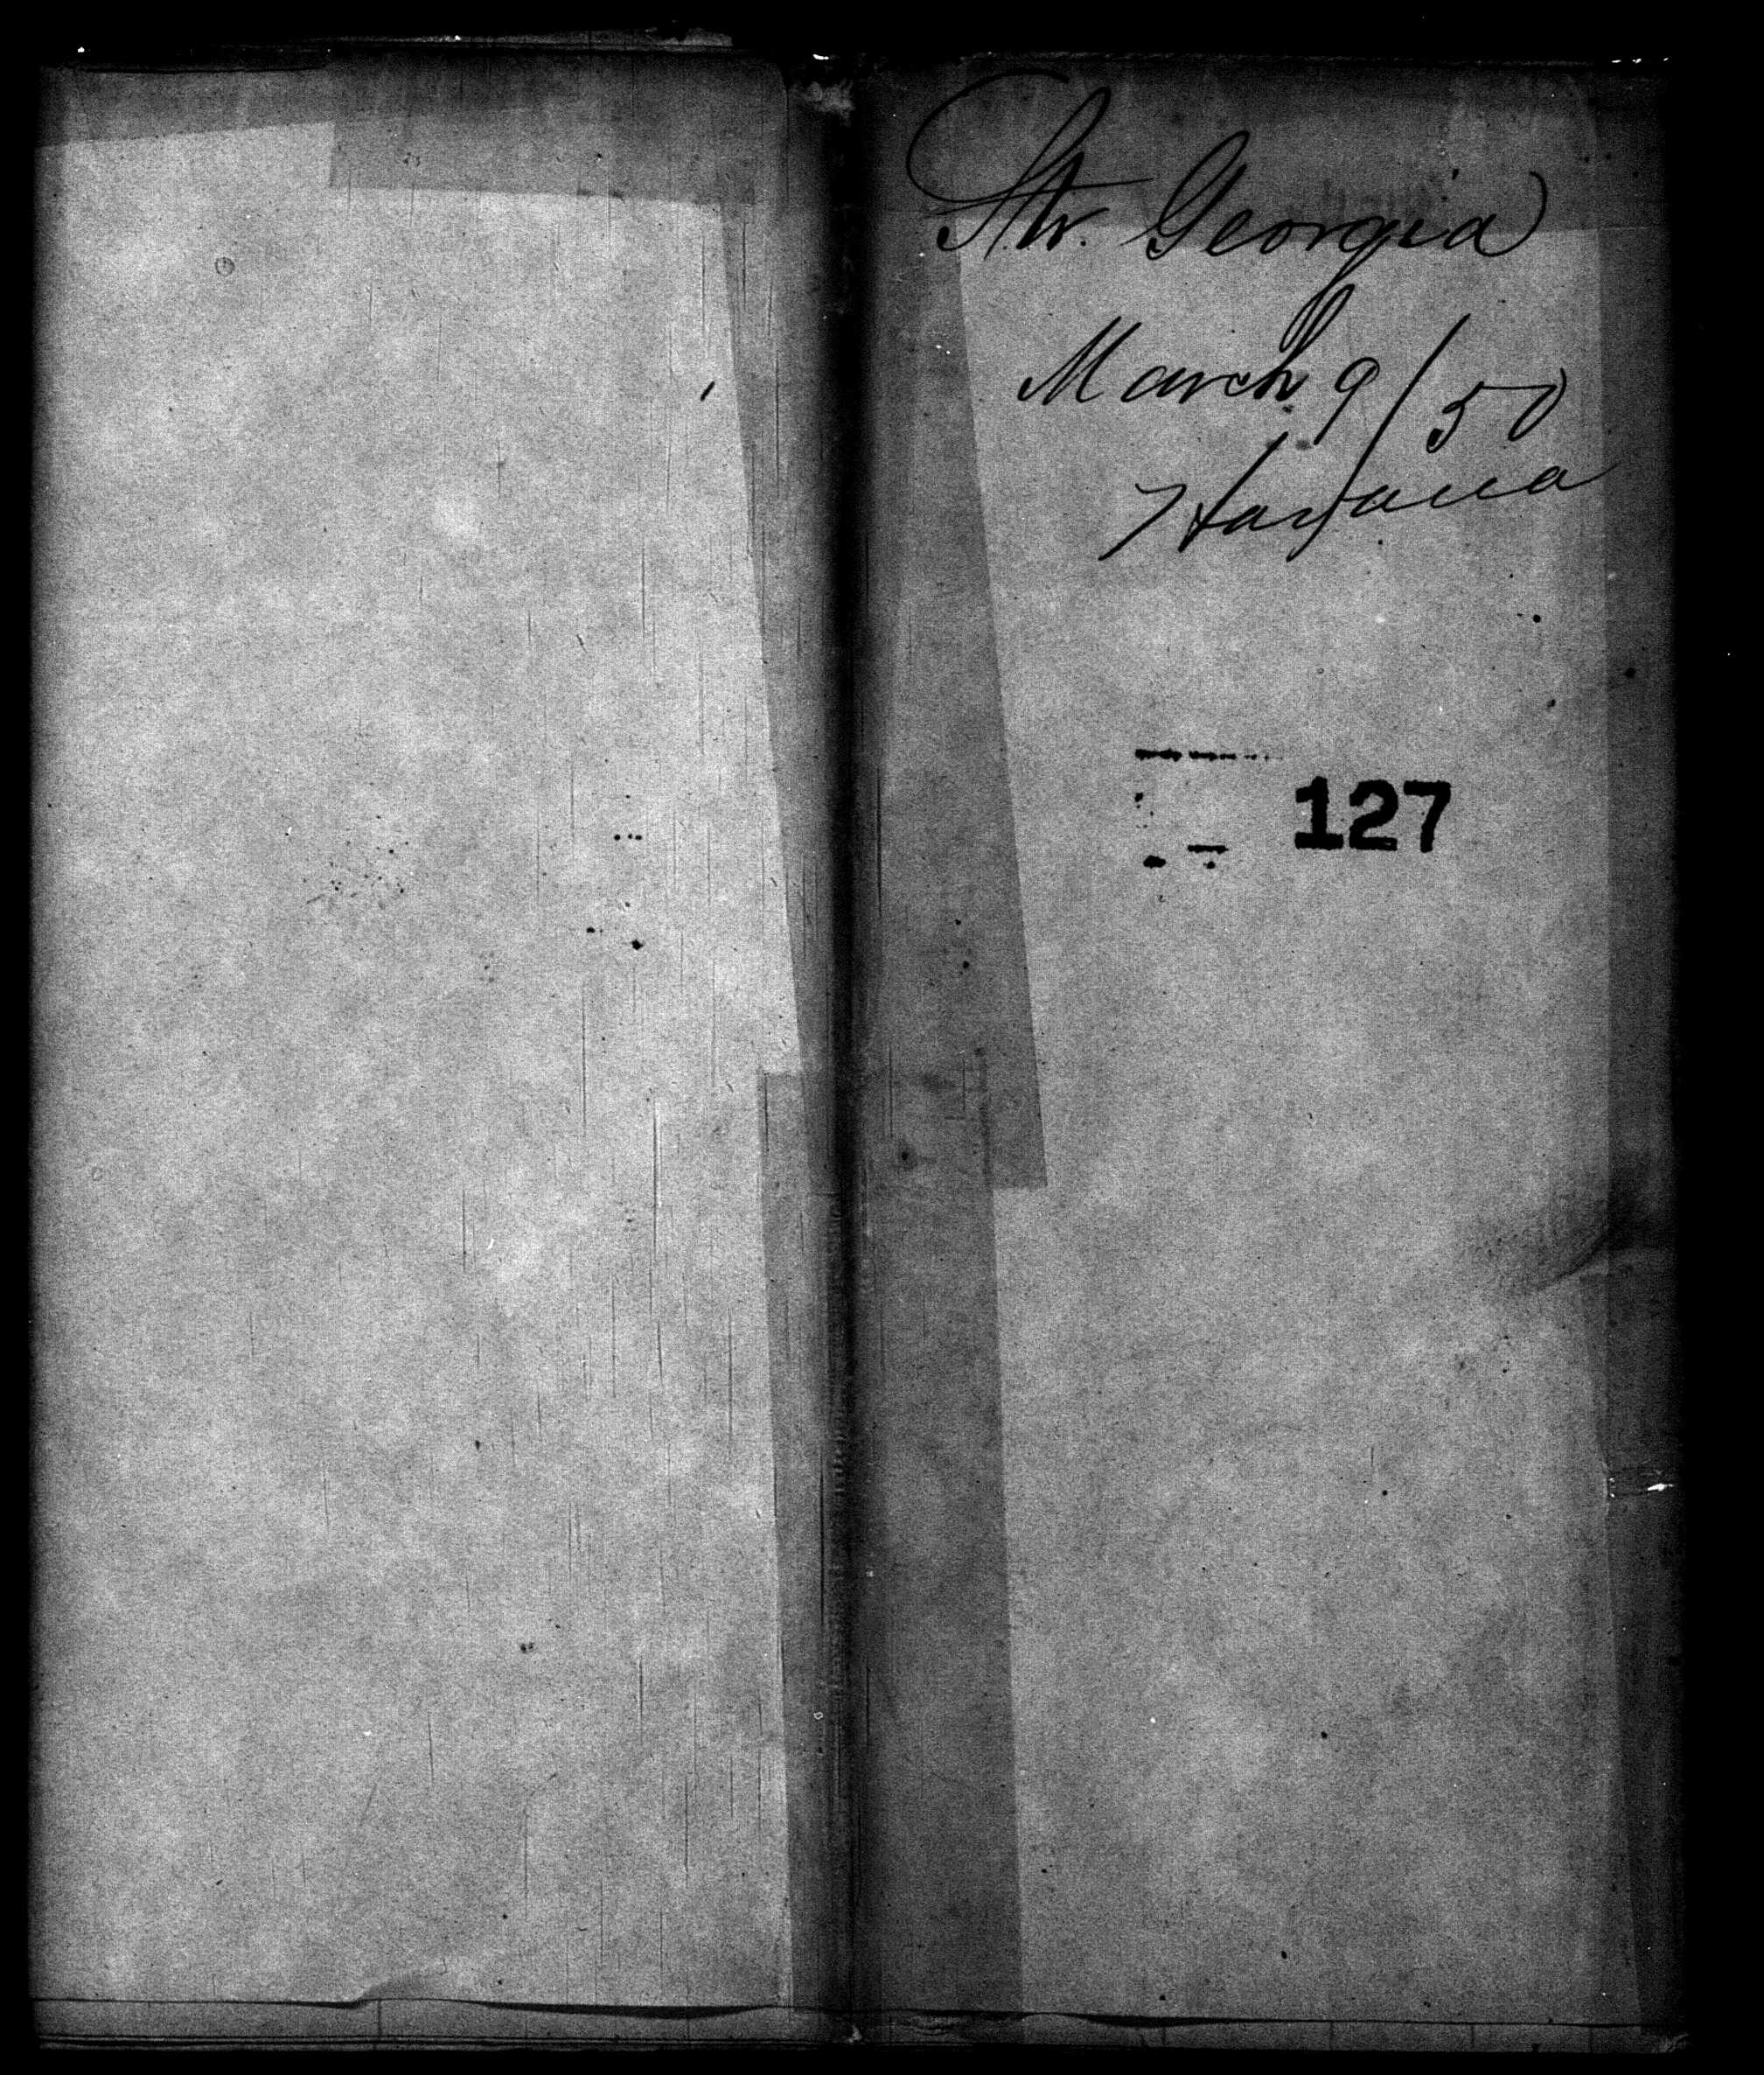 Str. Georgia
March 9/50
Havana
127